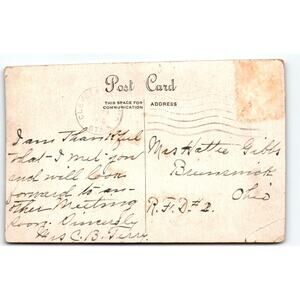 Post Card
THIS SPACE FOR
COMMUNICATION
ADDRESS
I am Thankful
that I met you
and will look
forward to an-
other Meeting
soon. Sincerely
Mrs C. B. Terry
Mrs Hattie Gibbs
Brunswick
Ohio
R.F.D # 2.